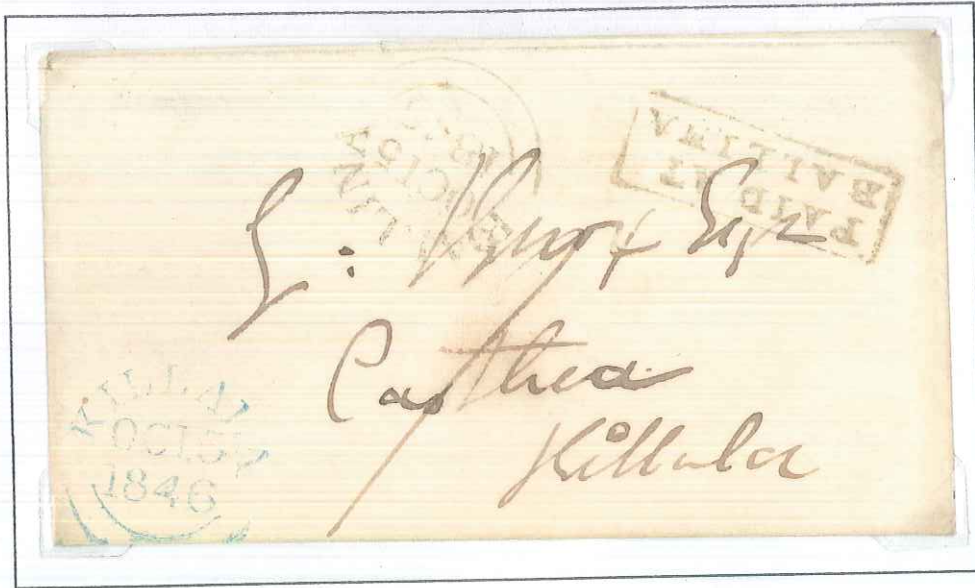 BALLINA
OCT 5
18
PAID AT
BALLINA
: Knox Esqr
Castlerea
Killala
KILLALA
OCT 5
1846